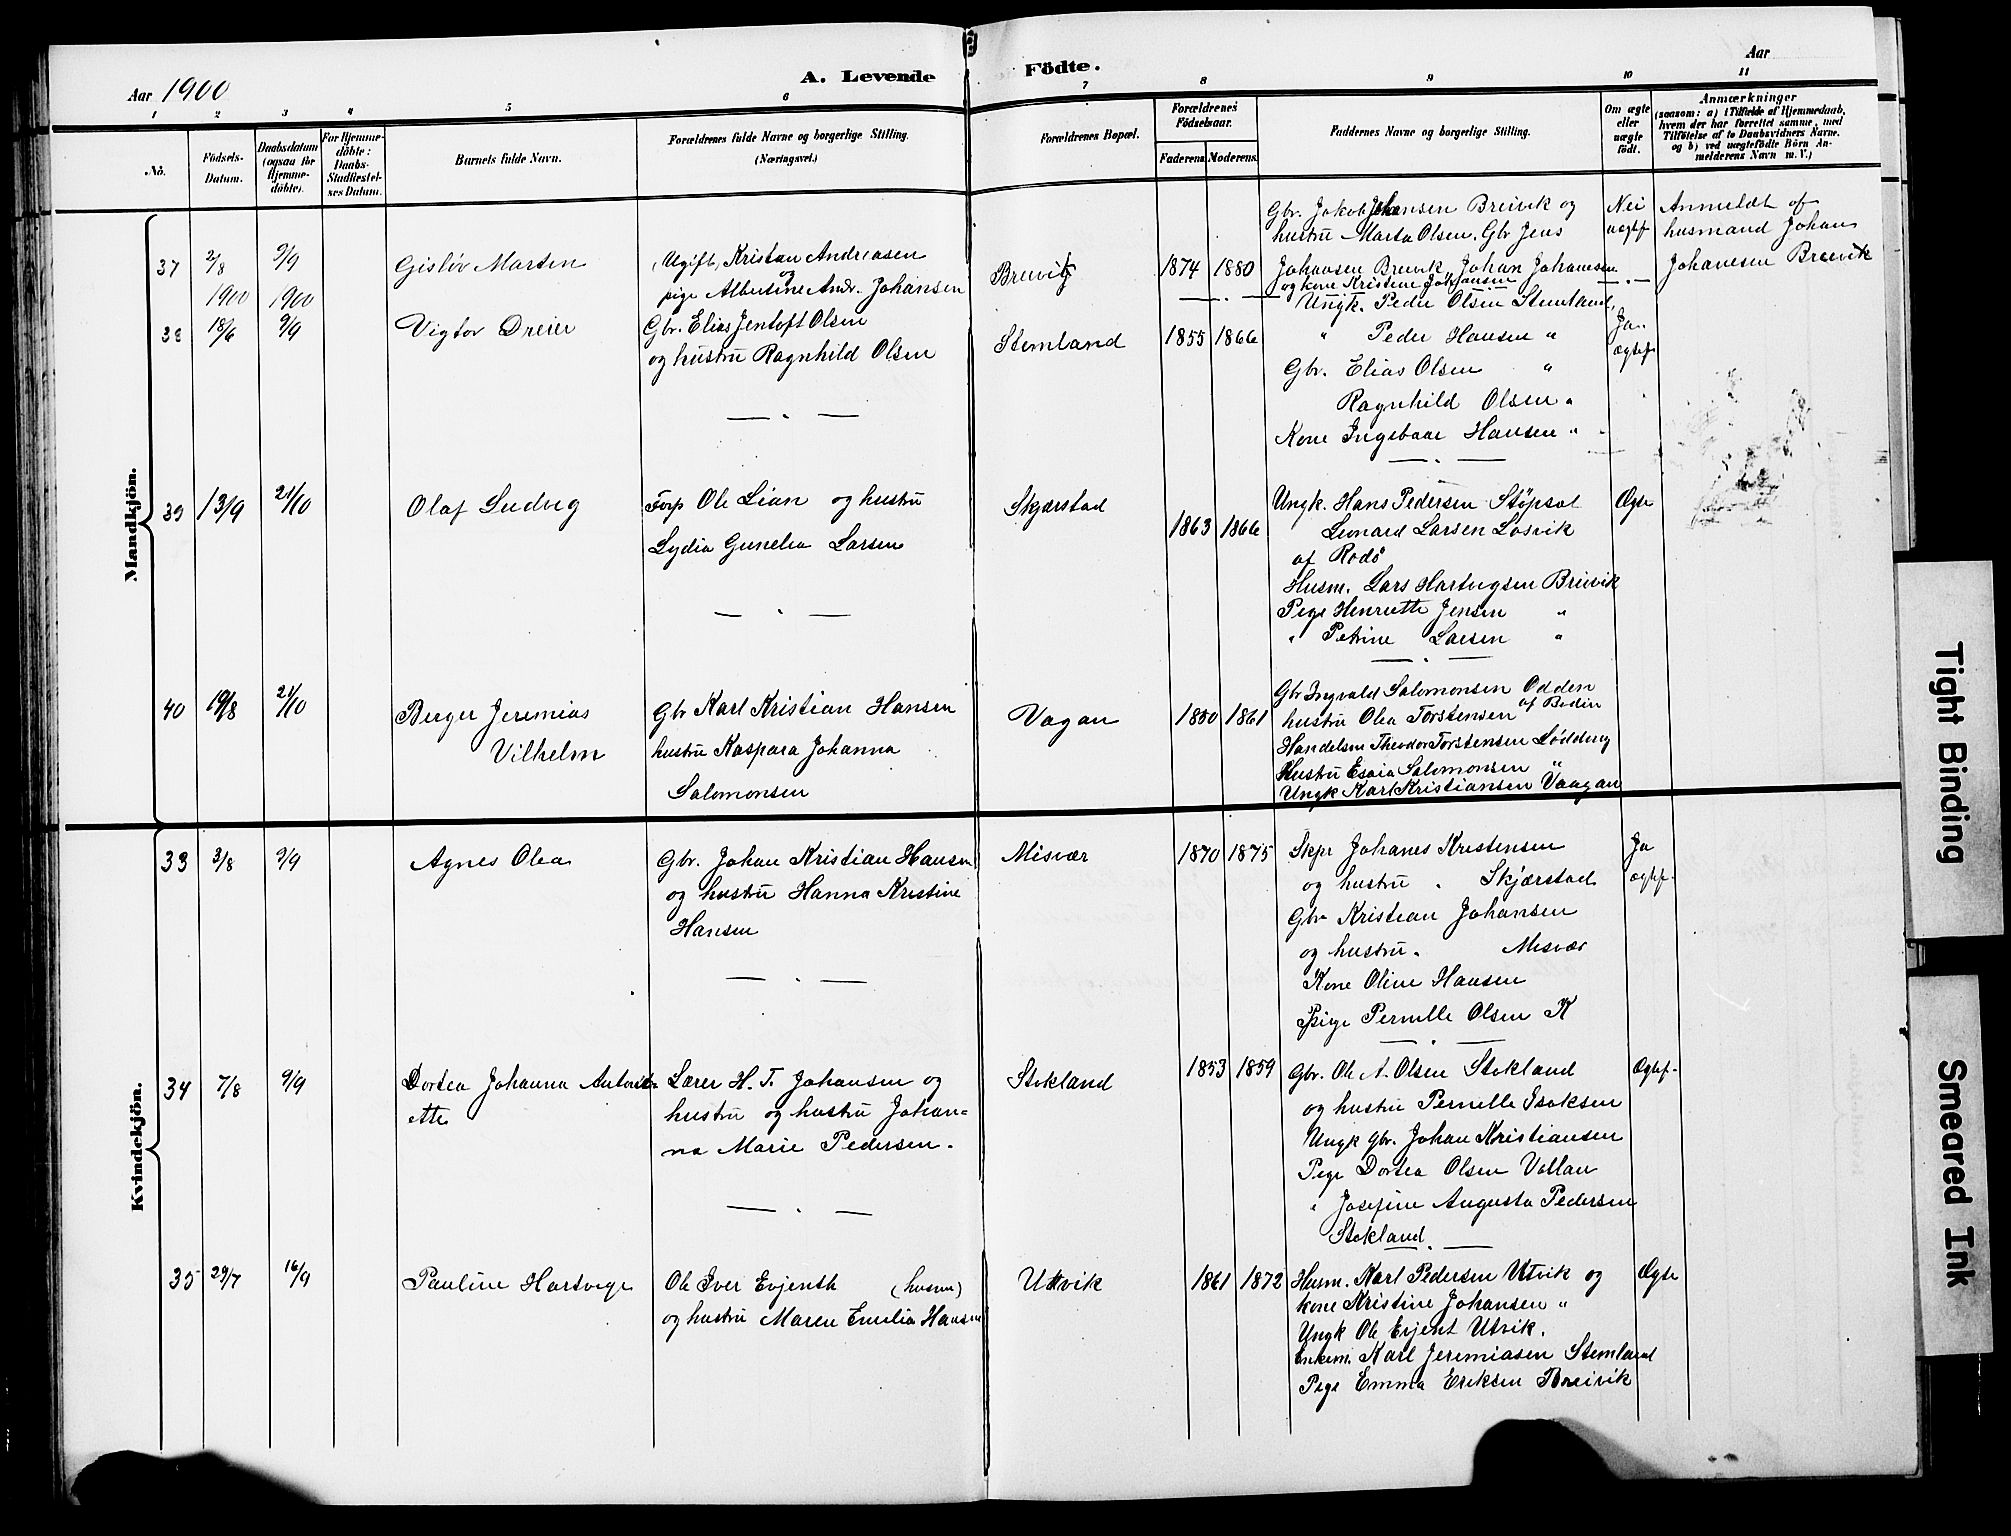 Aar 1900
A. Levende Födte.
Aar
1 2 3 4 5 6 7 8 9 10 11
No.
Födsels-
Datum.
Daabsdatum
(ogsaa for
Hjemme-
döbte).
For Hjemme-
döbte:
Daabs-
Stadfæstel-
ses Datum.
Barnets fulde Navn.
Forældrenes fulde Navne og borgerlige Stilling.
(Næringsvei.)
Forældrenes Bopæl.
Forældrenes
Födselsaar.
Faderens. Moderens.
Faddernes Navne og borgerlige Stilling.
Om ægte
eller
uægte
födt.
Anmærkninger
(saasom: a) i Tilfælde af Hjemmedaab,
hvem der har forrettet samme, med
Tilföielse af to Daabsvidners Navne.
og b) ved uægtefödte Börn An-
melderens Navn m. V.)
Mandkjön.
37 2/8 1900 9/9 1900 Gisløv Martin
(Ugift) Kristian Andreasen
og
pige Albertine Andr. Johansen
Breivig 1874 1880
Gbr. Jakob Johansen Breivik og
hustru Marta Olsen. Gbr Jens
Johansen Breivik, Johan Johanesen
og kone Kristine Johansen
Nei
uægtef
Anmeldt af
husmand Johan
Johanesen Breivik
38 18/6 9/9 Vigtor Dreier
Gbr. Elias Jentoft Olsen
og hustru Ragnhild Olsen
Stemland 1855 1866
Ungk. Peder Olsen Stemland,
" Peder Hansen "
Gbr. Elias Olsen "
Ragnhild Olsen "
Kone Ingebaar Hansen "
Ja.
ægtef
39 13/9 21/10 Olaf Ludvig
Forp Ole Lian og hustru
Lydia Gunelia Larsen
Skjærstad 1863 1866
Ungk. Hans Pedersen Støpsat
Leonard Larsen Løsvik
af Rødø
Husm. Lars Hartvigsen Breivik
Pige Henriette Jensen "
" Petrine Larsen "
Ægte
40 19/8 21/10 Berger Jeremias
Vilhelm
Gbr Karl Kristian Hansen
hustru Kaspara Johanna
Salomonsen
Vagan 1850 1861
Gbr Ingvald Salomonsen Odden
af Bodin
hustru Olea Torstensen
Handelsm Theodor Torstensen Lødding
Hustru Esaia Salomonsen "
Ungk Karl Kristiansen Vaagan
Kvindekjön.
33 3/8 9/9 Agnes Olea
Gbr. Johan Kristian Hansen
og hustru Hanna Kristine
Hansen
Misvær 1870 1875
Skpr Johanes Kristensen
og hustru . Skjærstad
Gbr Kristian Johansen
og hustru . Misvær
Kone Oline Hansen
Pige Pernille Olsen K
Ja
ægtef.
34 7/8 9/9 Dortea Johanna Antoni-
ette
Lærer H. T. Johansen og
hustru og hustru Johan=
na Marie Pedersen.
Stokland 1853 1859
Gbr. Ole A. Olsen Stokland
og hustru Pernille Isaksen
Ungk gbr. Johan Kristiansen
Pige Dortea Olsen Vallan
" Josefine Augusta Pedersen
Stokland.
Ægtef.
35 29/7 16/9 Pauline Hartvige
Ole Iver Evjenth (husm)
og hustru Maren Emilia Hansen
Utvik 1861 1872
Husm. Karl Pedersen Utvik og
kone Kristine Johansen "
Ungk Ole Evjent Utvik.
Enkem. Karl Jeremiasen Stemland
Pige Emma Eriksen Breivik
Ægte
Tight Binding
Smeared Ink